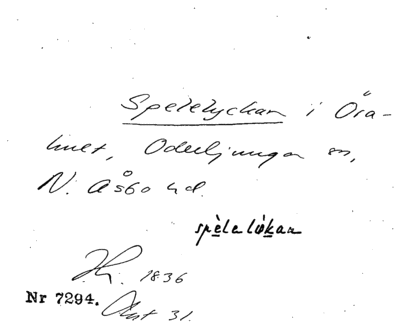 Spelelyckan i Öra-
linet, Oderljunga sn,
N. Åsbo hd.
spèlelўkan
1836
Nr 7294. Akt 31.